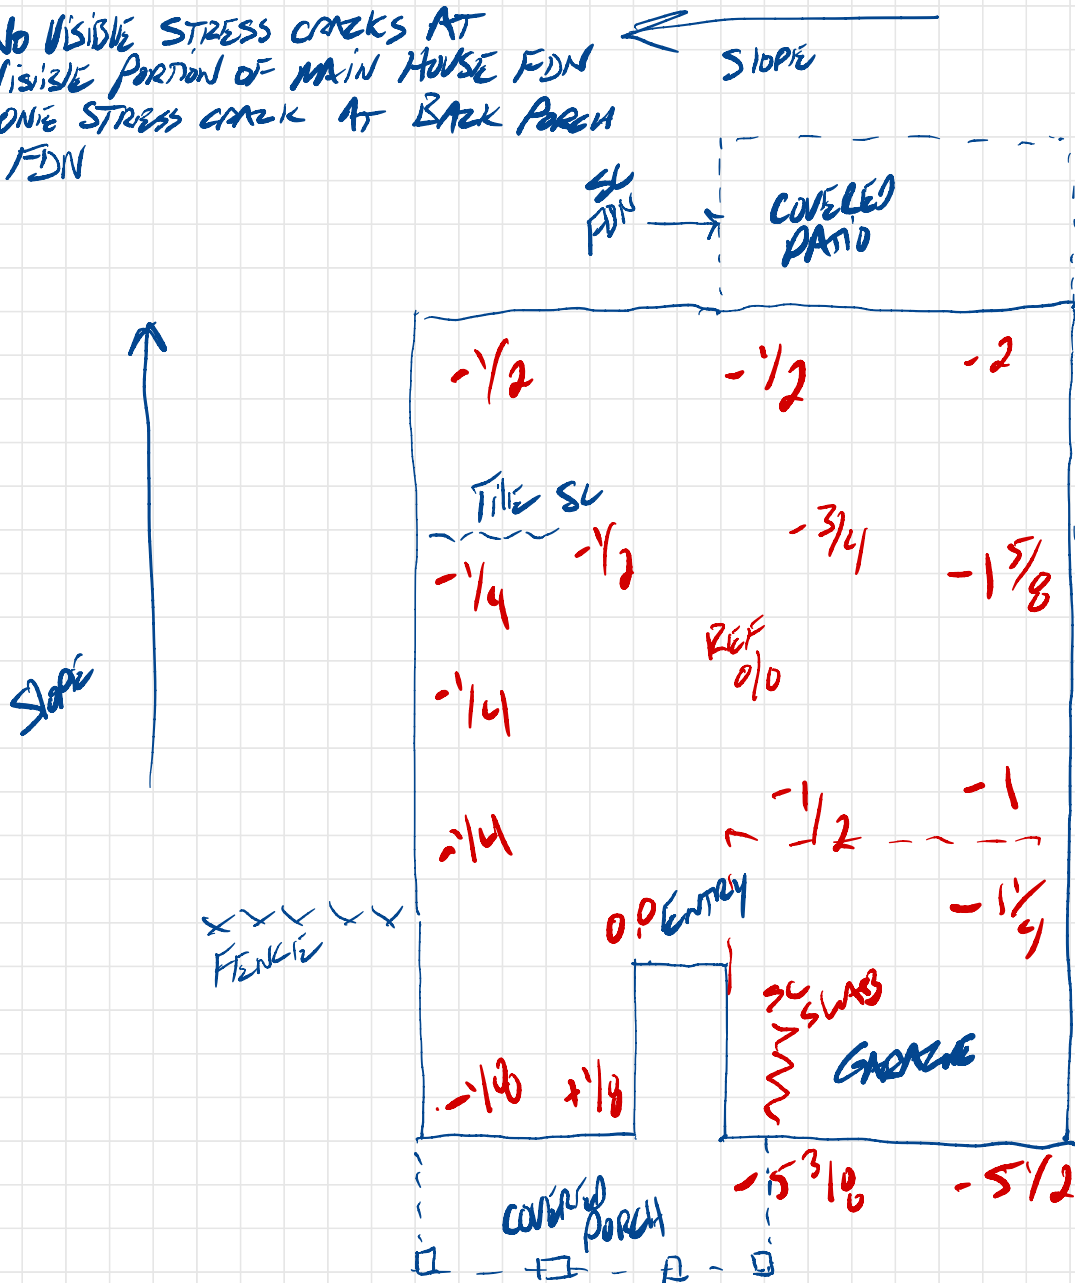 No VISIBLE STRESS CRACKS AT
VISIBLE PORTION OF MAIN HOUSE FDN
ONE STRESS CRACK AT BACK PORCH
FDN
SLOPE
SC
FDN
COVERED
PATIO
-1/2
-1/2
-2
TILE SC
-1/2
-3/4
-1 5/8
-1/4
REF
0/0
SLOPE
-1/4
-1/2
-1
-1/4
0.0
ENTRY
-1 1/4
FENCE
SC
SLAB
GARAGE
-1/8
+1/8
-5 3/8
-5 1/2
COVERED
PORCH